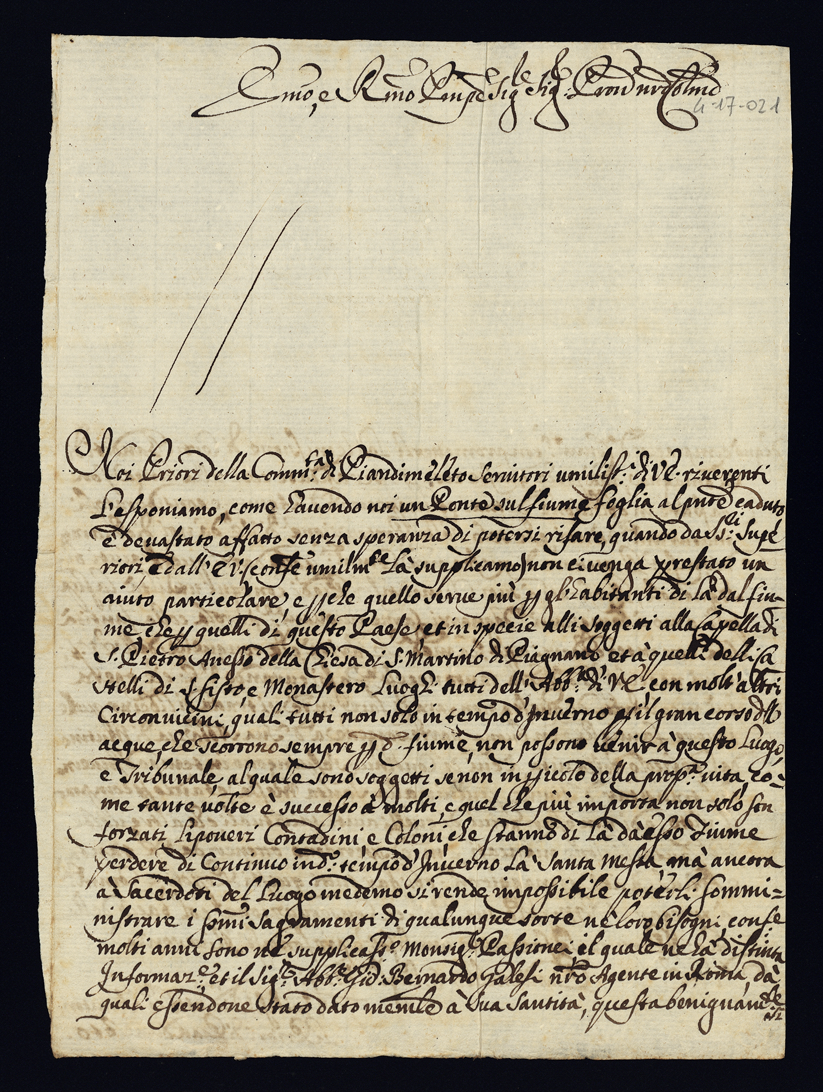 Emo, e Rmo Pnpe Sigre Sigre Pron
4-17-021
Noi Priori della Commtà di Piandimeleto Servitori umilissi di V.E. riverenti
l'esponiamo, come havendo noi un Ponte sul fiume foglia al pnte caduto
e devastato affatto senza speranza di potersi rifare, quando da Ssri Supe
riori e dall'E.V. (conse umilmte La supplicamo) non ci venga prestato un
aiuto particolare, e che quello serve più gl'habitanti di là dal fiu-
me che quelli di questo Paese, et in specie alli soggetti alla Capella di
S. Pietro Anesso della Chiesa di S. Martino di Piagnano et à quelli delli Ca
stelli di S. Sisto, e Monastero Luoghi tutti dell'Abbia di V.E. con molt'altri
Circonvicini, quali tutti non solo in tempo d'Inverno il gran corso dll
acque che scorrono sempre do fiume, non possono venir à questo Luogo,
e Tribunale, al quale sono soggetti se non in picolo della propa vita, co-
me tante volte è successo à molti, e quel che più importa non solo son
forzati li poveri Contadini e Coloni che stanno di là da esso Fiume
perdere di Continuo in do tempo d'Inverno La Santa Messa mà ancora
a Sacerdoti del Luogo medemo si rende impossibile poterli sommi=
nistrare i Ssmi Sagramenti di qualunque sorte ne loro bisogni, conse
molti anni sono ne supplicassimo Monsigr Passionei, el quale ne hà distinta
Informaze, et il Sigr Abbe Gio: Bernardo Galesi nro Agente in Roma, da
quali essendone stato dato memle à Sua Santità, questa benignamte